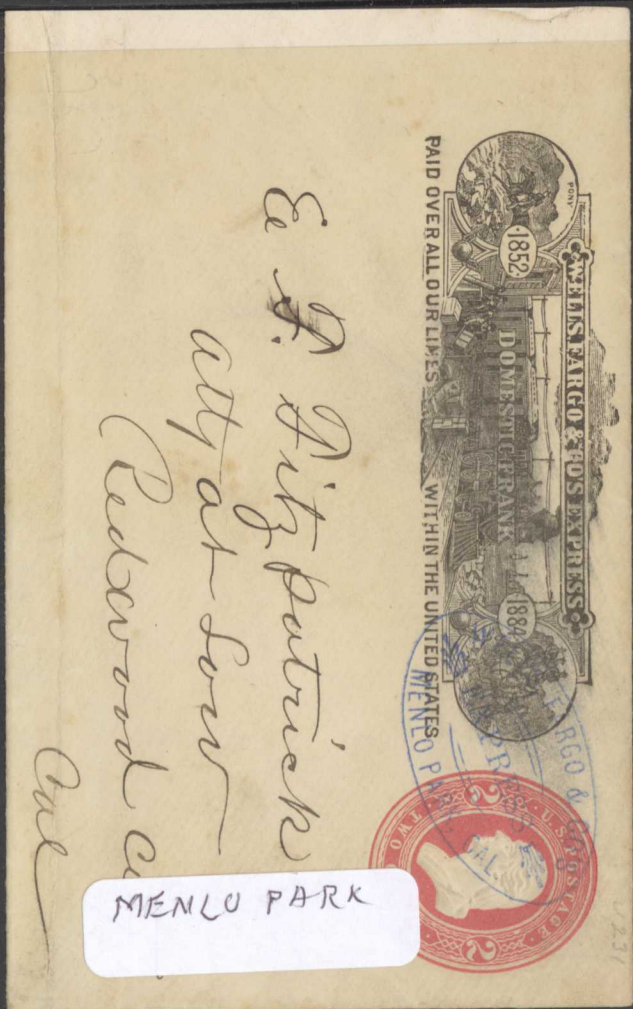 WELLS, FARGO & CO'S EXPRESS
PONY
1852
DOMESTIC FRANK
1884
PAID OVER ALL OUR LINES WITHIN THE UNITED STATES
FARGO & CO'S
EXPRESS
MENLO PARK, CAL.
U.S. POSTAGE
TWO
2
2
U231
E. F. Fitzpatrick
Atty at Law
Redwood
Cal
MENLO PARK